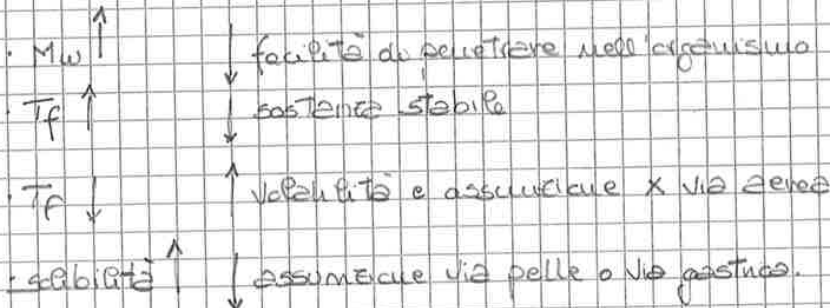 · Mw ↑ ↓ facilità di penetrare nell'organismo
· Tf ↑ ↓ sostanza stabile
· Tf ↓ ↑ volatilità e assunzione x via aerea
- solubilità ↑ ↓ assunzione via pelle o via gastrica.